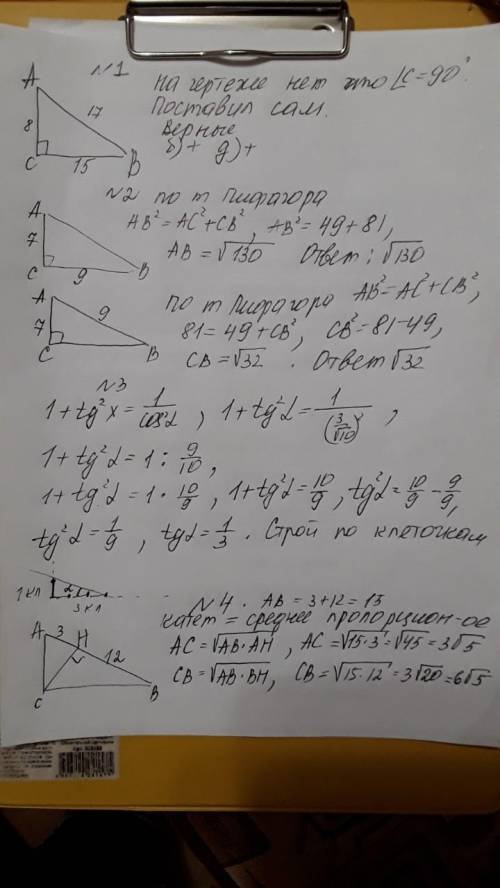 №1 на чертеже нет что ∠C=90°.
Поставил сам.
верные
б)+ д)+
A
8
17
C
15
B
№2 по т Пифагора
AB²=AC²+CB², AB²=49+81,
AB=√130 Ответ: √130
A
7
C
9
B
по т Пифагора AB²=AC²+CB²,
81=49+CB², CB²=81-49,
CB=√32. Ответ √32
A
7
9
C
B
№3
1+tg²x=1/cos²α, 1+tg²α=1/(3/√10)²,
1+tg²α=1:9/10,
1+tg²α=1·10/9, 1+tg²α=10/9, tg²α=10/9-9/9,
tg²α=1/9, tgα=1/3. Строй по клеточкам
1кл α
3кл
№4. AB=3+12=15
катет = среднее пропорцион-ое
AC=√AB·AH, AC=√15·3=√45=3√5
CB=√AB·BH, CB=√15·12=3√20=6√5
A 3 H
12
C
B